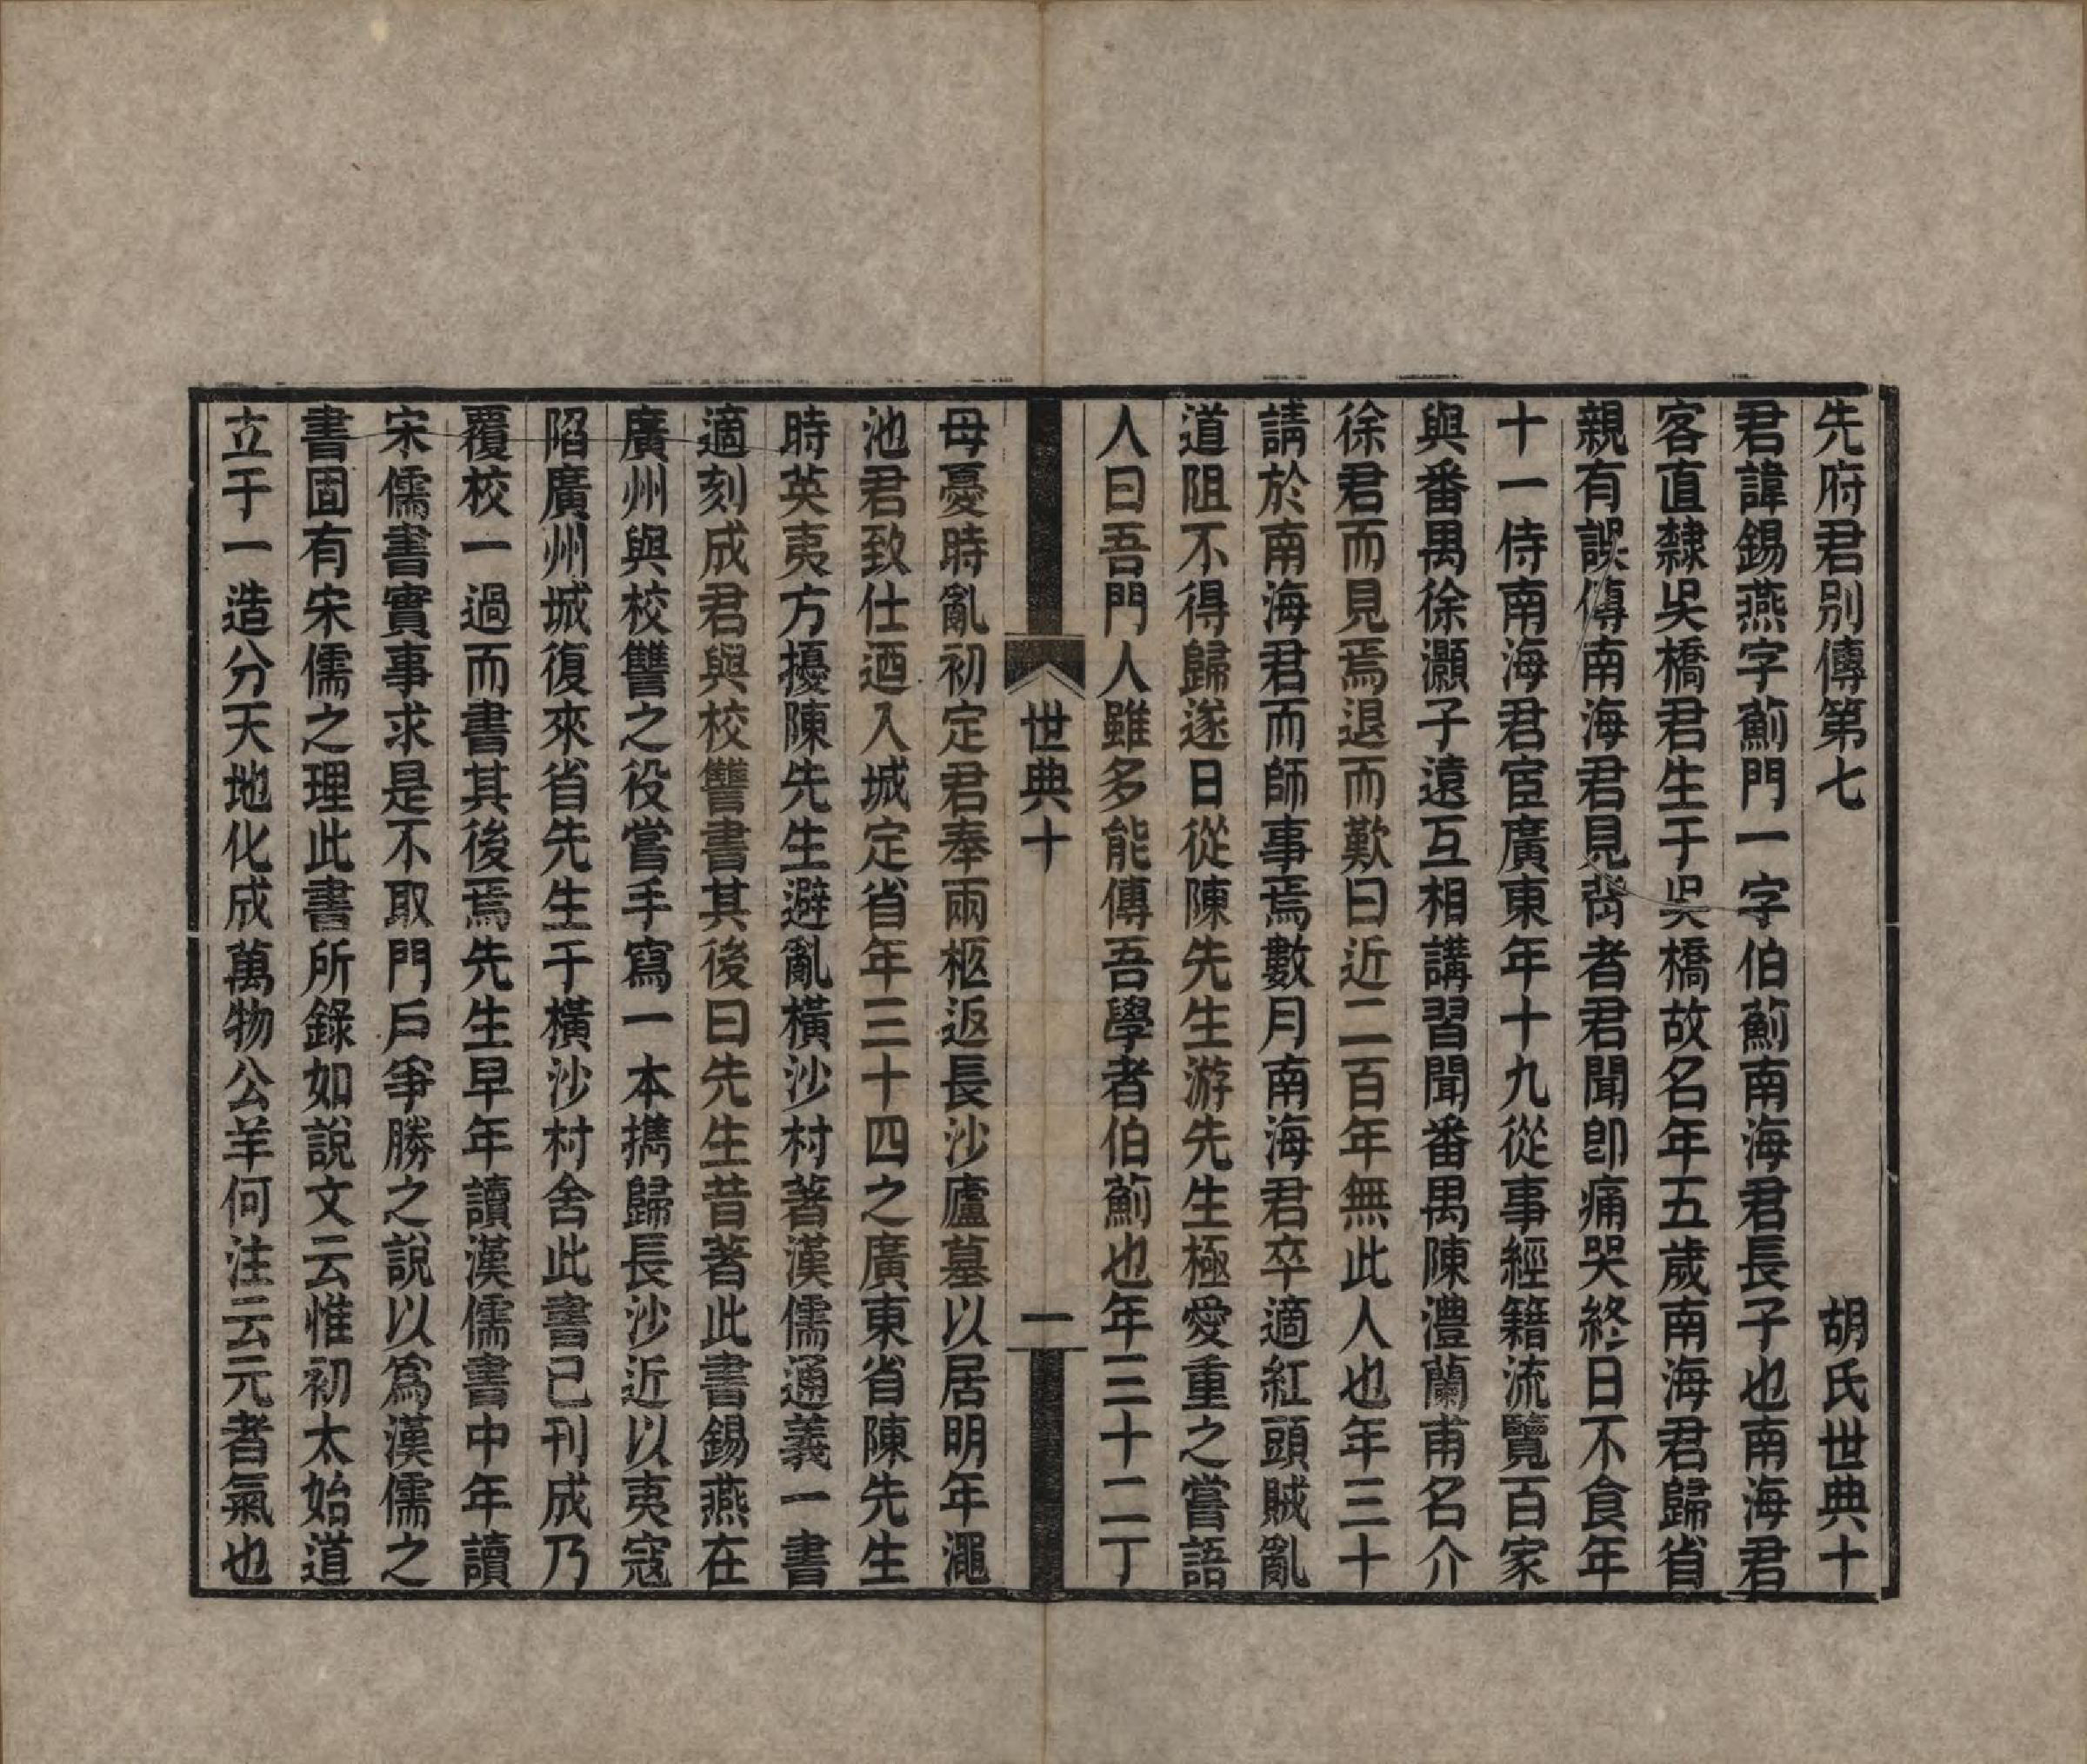 先府君別傳第七 胡氏世典十
君諱錫燕字薊門一字伯薊南海君長子也南海君
客直隸吳橋君生于吳橋故名年五歲南海君歸省
親有誤傳南海君見背者君聞卽痛哭終日不食年
十一侍南海君宦廣東年十九從事經籍流覽百家
與番禺徐灝子遠互相講習聞番禺陳澧蘭甫名介
徐君而見焉退而歎曰近二百年無此人也年三十
請於南海君而師事焉數月南海君卒適紅頭賊亂
道阻不得歸遂日從陳先生游先生極愛重之嘗語
人曰吾門人雖多能傳吾學者伯薊也年三十二丁
世典十 一
母憂時亂初定君奉兩柩返長沙廬墓以居明年澠
池君致仕迺入城定省年三十四之廣東省陳先生
時英夷方擾陳先生避亂橫沙村著漢儒通義一書
適刻成君與校讐書其後曰先生昔著此書錫燕在
廣州與校讐之役嘗手寫一本攜歸長沙近以夷寇
陷廣州城復來省先生于橫沙村舍此書已刊成乃
覆校一過而書其後焉先生早年讀漢儒書中年讀
宋儒書實事求是不取門戶爭勝之說以爲漢儒之
書固有宋儒之理此書所錄如說文云惟初太始道
立于一造分天地化成萬物公羊何注云元者氣也